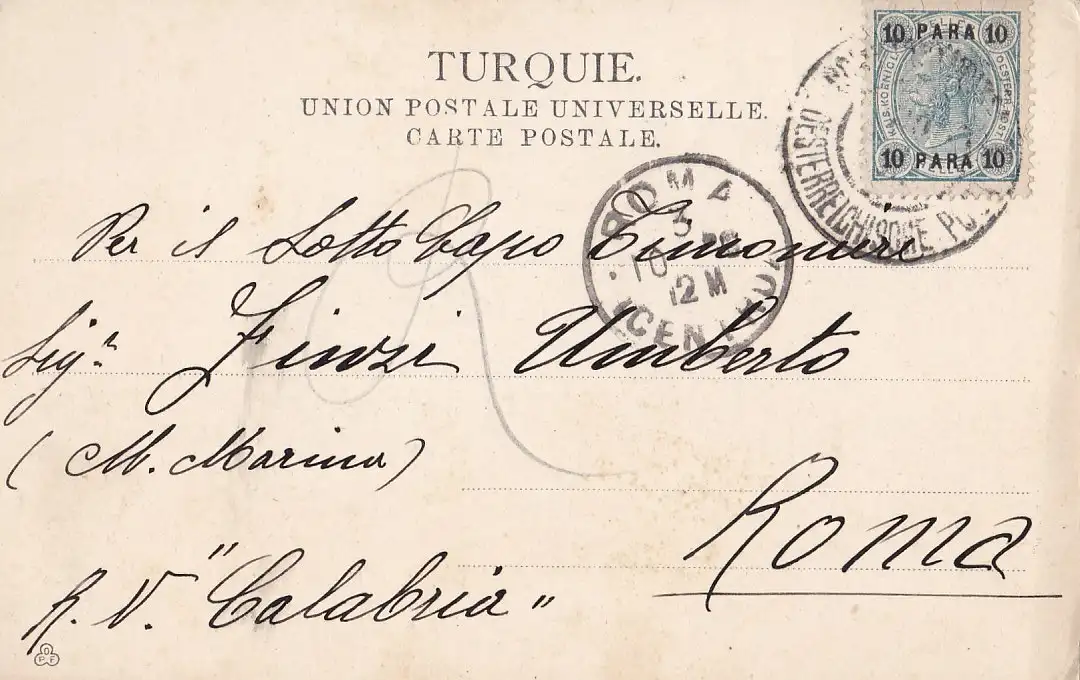 TURQUIE.
UNION POSTALE UNIVERSELLE.
CARTE POSTALE.
10 PARA 10
10 PARA 10
OESTERREICHISCHE PO
ROMA
3
10
12 M
CENT
Per il Sotto Capo Timoniere
Sigr Finzi Umberto
(M. Marina)
Roma
R. N. "Calabria"